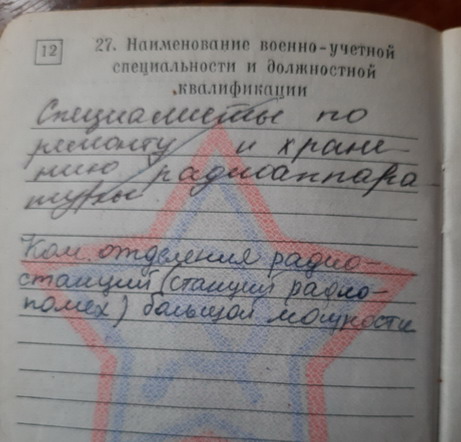 12
27. Наименование военно-учетной
специальности и должностной
квалификации
Специалисты по
ремонту и хране-
нию радиоаппара
туры
Ком. отделения радио-
станций (станций радио-
помех) большой мощности